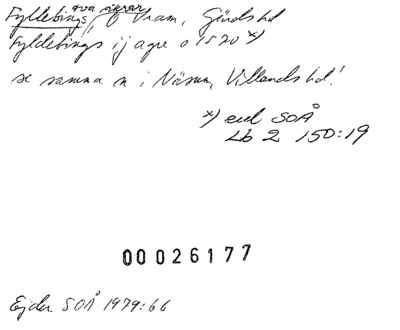 två åkrar
Fyllebings, Ö Vram, Gärds hd
Fyldebings ij agre o 1520 x)
se samma n i Näsum, Villands hd!
x) enl SOÅ
Lb 2 150:19
00026177
Ejder SOÅ 1979:66